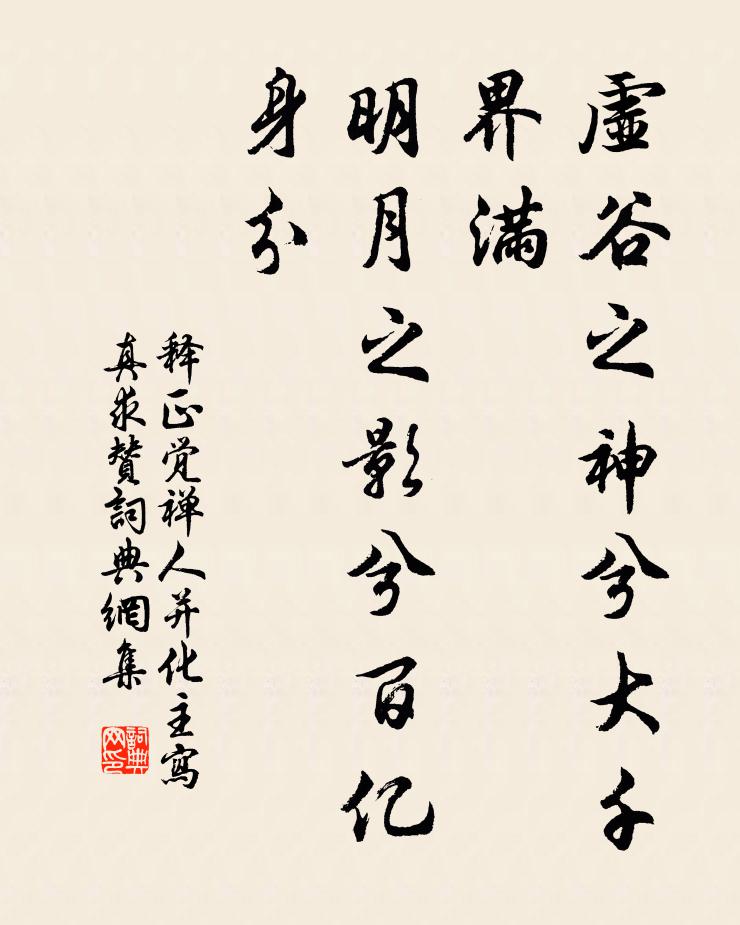 虚谷之神兮大千
界满
明月之影兮百亿
身分
释正觉禅人并化主寫
真求賛詞典網集
詞典
网印